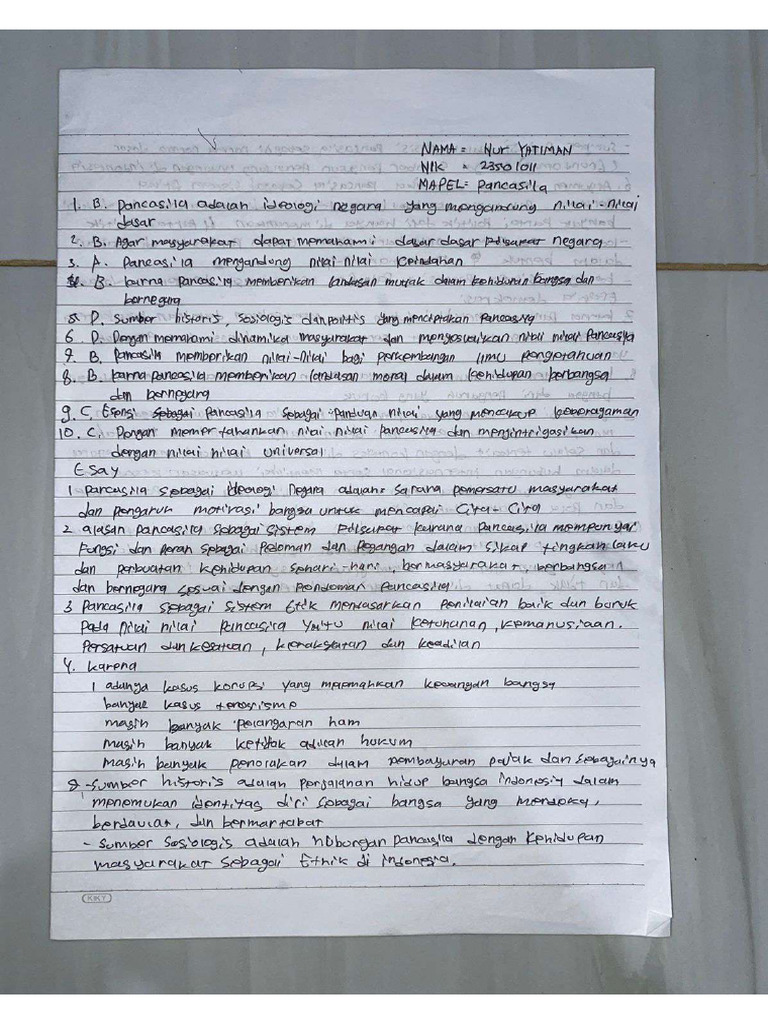 NAMA = NUR YATIMAN
NIK = 23501011
MAPEL = Pancasila
1. B. Pancasila adalah ideologi negara yang mengandung nilai-nilai
dasar
2. B. Agar masyarakat dapat memahami dasar dasar Filsafat negara
3. A. Pancasila mengandung nilai-nilai Keindahan
B. karna Pancasila memberikan landasan mutlak dalam kehidupan bangsa dan
bernegara
D. Sumber historis, sosiologis dan politis yang menciptakan Pancasila
6. D. Dengan memahami dinamika masyarakat dan menyesuaikan nilai nilai Pancasila
7. B. Pancasila memberikan nilai-nilai bagi perkembangan ilmu pengetahuan
8. B. karna Pancasila memberikan landasan moral dalam kehidupan berbangsa
dan bernegara
9. C. Esensi sebagai Pancasila sebagai Panduan nilai yang mencakup keberagaman
10. C. Dengan mempertahankan nilai nilai Pancasila dan mengintrigasikan
dengan nilai nilai universal
Esay
1 Pancasila sebagai ideologi Negara adalah= Sarana pemersatu masyarakat
dan pengaruh motivasi bangsa untuk mencapai Cita-Cita
2 alasan Pancasila sebagai sistem Filsafat karana Pancasila mempunyai
Fungsi dan peran sebagai Pedoman dan Pegangan dalam sikap tingkah laku
dan perbuatan kehidupan sehari-hari, bermasyarakat, berbangsa
dan bernegara sesuai dengan Pendoman Pancasila
3 Pancasila sebagai sistem Etik mendasarkan Penilaian baik dan buruk
Pada Nilai nilai Pancasila Yaitu nilai ketuhanan, kemanusiaan.
Persatuan dan kesatuan, kerakyatan dan keadilan
4. karena
1 adanya kasus korupsi yang melemahkan keuangan bangsa
banyak kasus terorisme
masih banyak pelangaran ham
masih banyak ketidak adilan hukum
masih banyak penolakan dalam pembayaran pajak dan sebagainya
- Sumber historis adalah perjalanan hidup bangsa indonesia dalam
menemukan identitas diri sebagai bangsa yang merdeka,
berdaulat, dan bermartabat
- Sumber Sosiologis adalah hubungan Pancasila dengan Kehidupan
masyarakat sebagai Ethik di indonesia.
KIKY